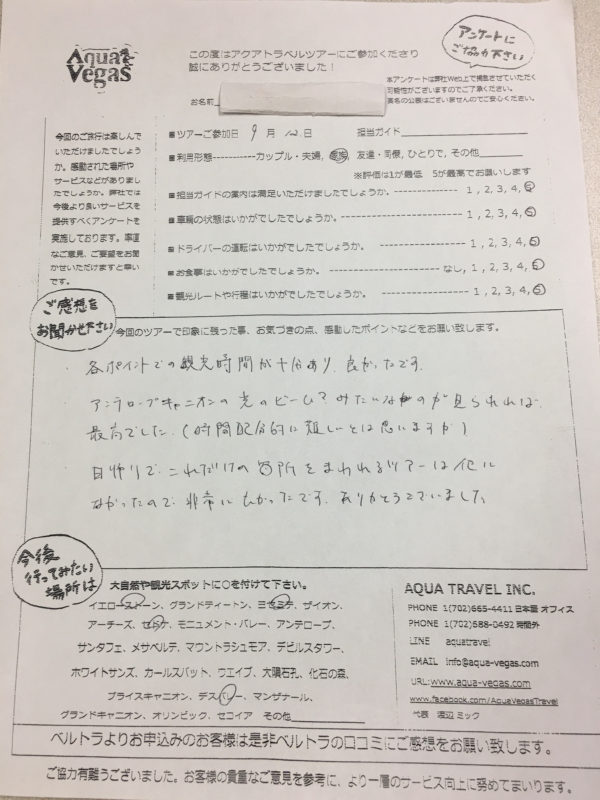 Aqua Vegas
この度はアクアトラベルツアーにご参加くださり
誠にありがとうございました！
アンケートに
ご協力下さい
本アンケートは弊社Web上で掲載させていただく
可能性がございますのでご了承ください。
実名の公表はございませんのでご安心ください。
お名前
今回のご旅行は楽しんで
いただけましたでしょう
か。感動された場所や
サービスなどがありまし
たでしょうか。弊社では
今後より良いサービスを
提供すべくアンケートを
実施しております。率直
なご意見、ご要望をお聞
かせいただけますと幸い
です。
■ツアーご参加日 9 月 12 日 担当ガイド
■利用形態------------カップル・夫婦, 家族, 友達・同僚, ひとりで, その他
※評価は1が最低 5が最高でお願いします
■担当ガイドの案内は満足いただけましたでしょうか。---------------- 1 , 2, 3, 4, 5
■車輌の状態はいかがでしたでしょうか。---------------- 1 , 2, 3, 4, 5
■ドライバーの運転はいかがでしたでしょうか。---------------- 1 , 2, 3, 4, 5
■お食事はいかがでしたでしょうか。---------------- なし, 1, 2, 3, 4, 5
■観光ルートや行程はいかがでしたでしょうか。---------------- 1 , 2, 3, 4, 5
ご感想を
お聞かせ下さい
今回のツアーで印象に残った事、お気づきの点、感動したポイントなどをお願い致します。
・各ポイントでの観光時間が十分あり、良かったです。
・アンテロープキャニオンの光のビーム？みたいなものが見られれば、
最高でした。(時間配分的に難しいとは思いますが)
・日帰りで、これだけの箇所をまわれるツアーは他に
なかったので、非常によかったです。ありがとうございました。
今後
行ってみたい
場所は
大自然や観光スポットに○を付けて下さい。
イエローストーン、グランドティートン、ヨセミテ、ザイオン、
アーチーズ、セドナ、モニュメント・バレー、アンテロープ、
サンタフェ、メサベルテ、マウントラシュモア、デビルスタワー、
ホワイトサンズ、カールスバット、ウエイブ、大隕石孔、化石の森、
ブライスキャニオン、デスバレー、マンザナール、
グランドキャニオン、オリンピック、セコイア その他
AQUA TRAVEL INC.
PHONE 1(702)665-4411 日本語 オフィス
PHONE 1(702)688-0492 時間外
LINE aquatravel
EMAIL info@aqua-vegas.com
URL:www.aqua-vegas.com
www.facebook.com/AquaVegasTravel
代表 渡辺 ミック
ベルトラよりお申込みのお客様は是非ベルトラの口コミにご感想をお願い致します。
ご協力有難うございました。お客様の貴重なご意見を参考に、より一層のサービス向上に努めてまいります。